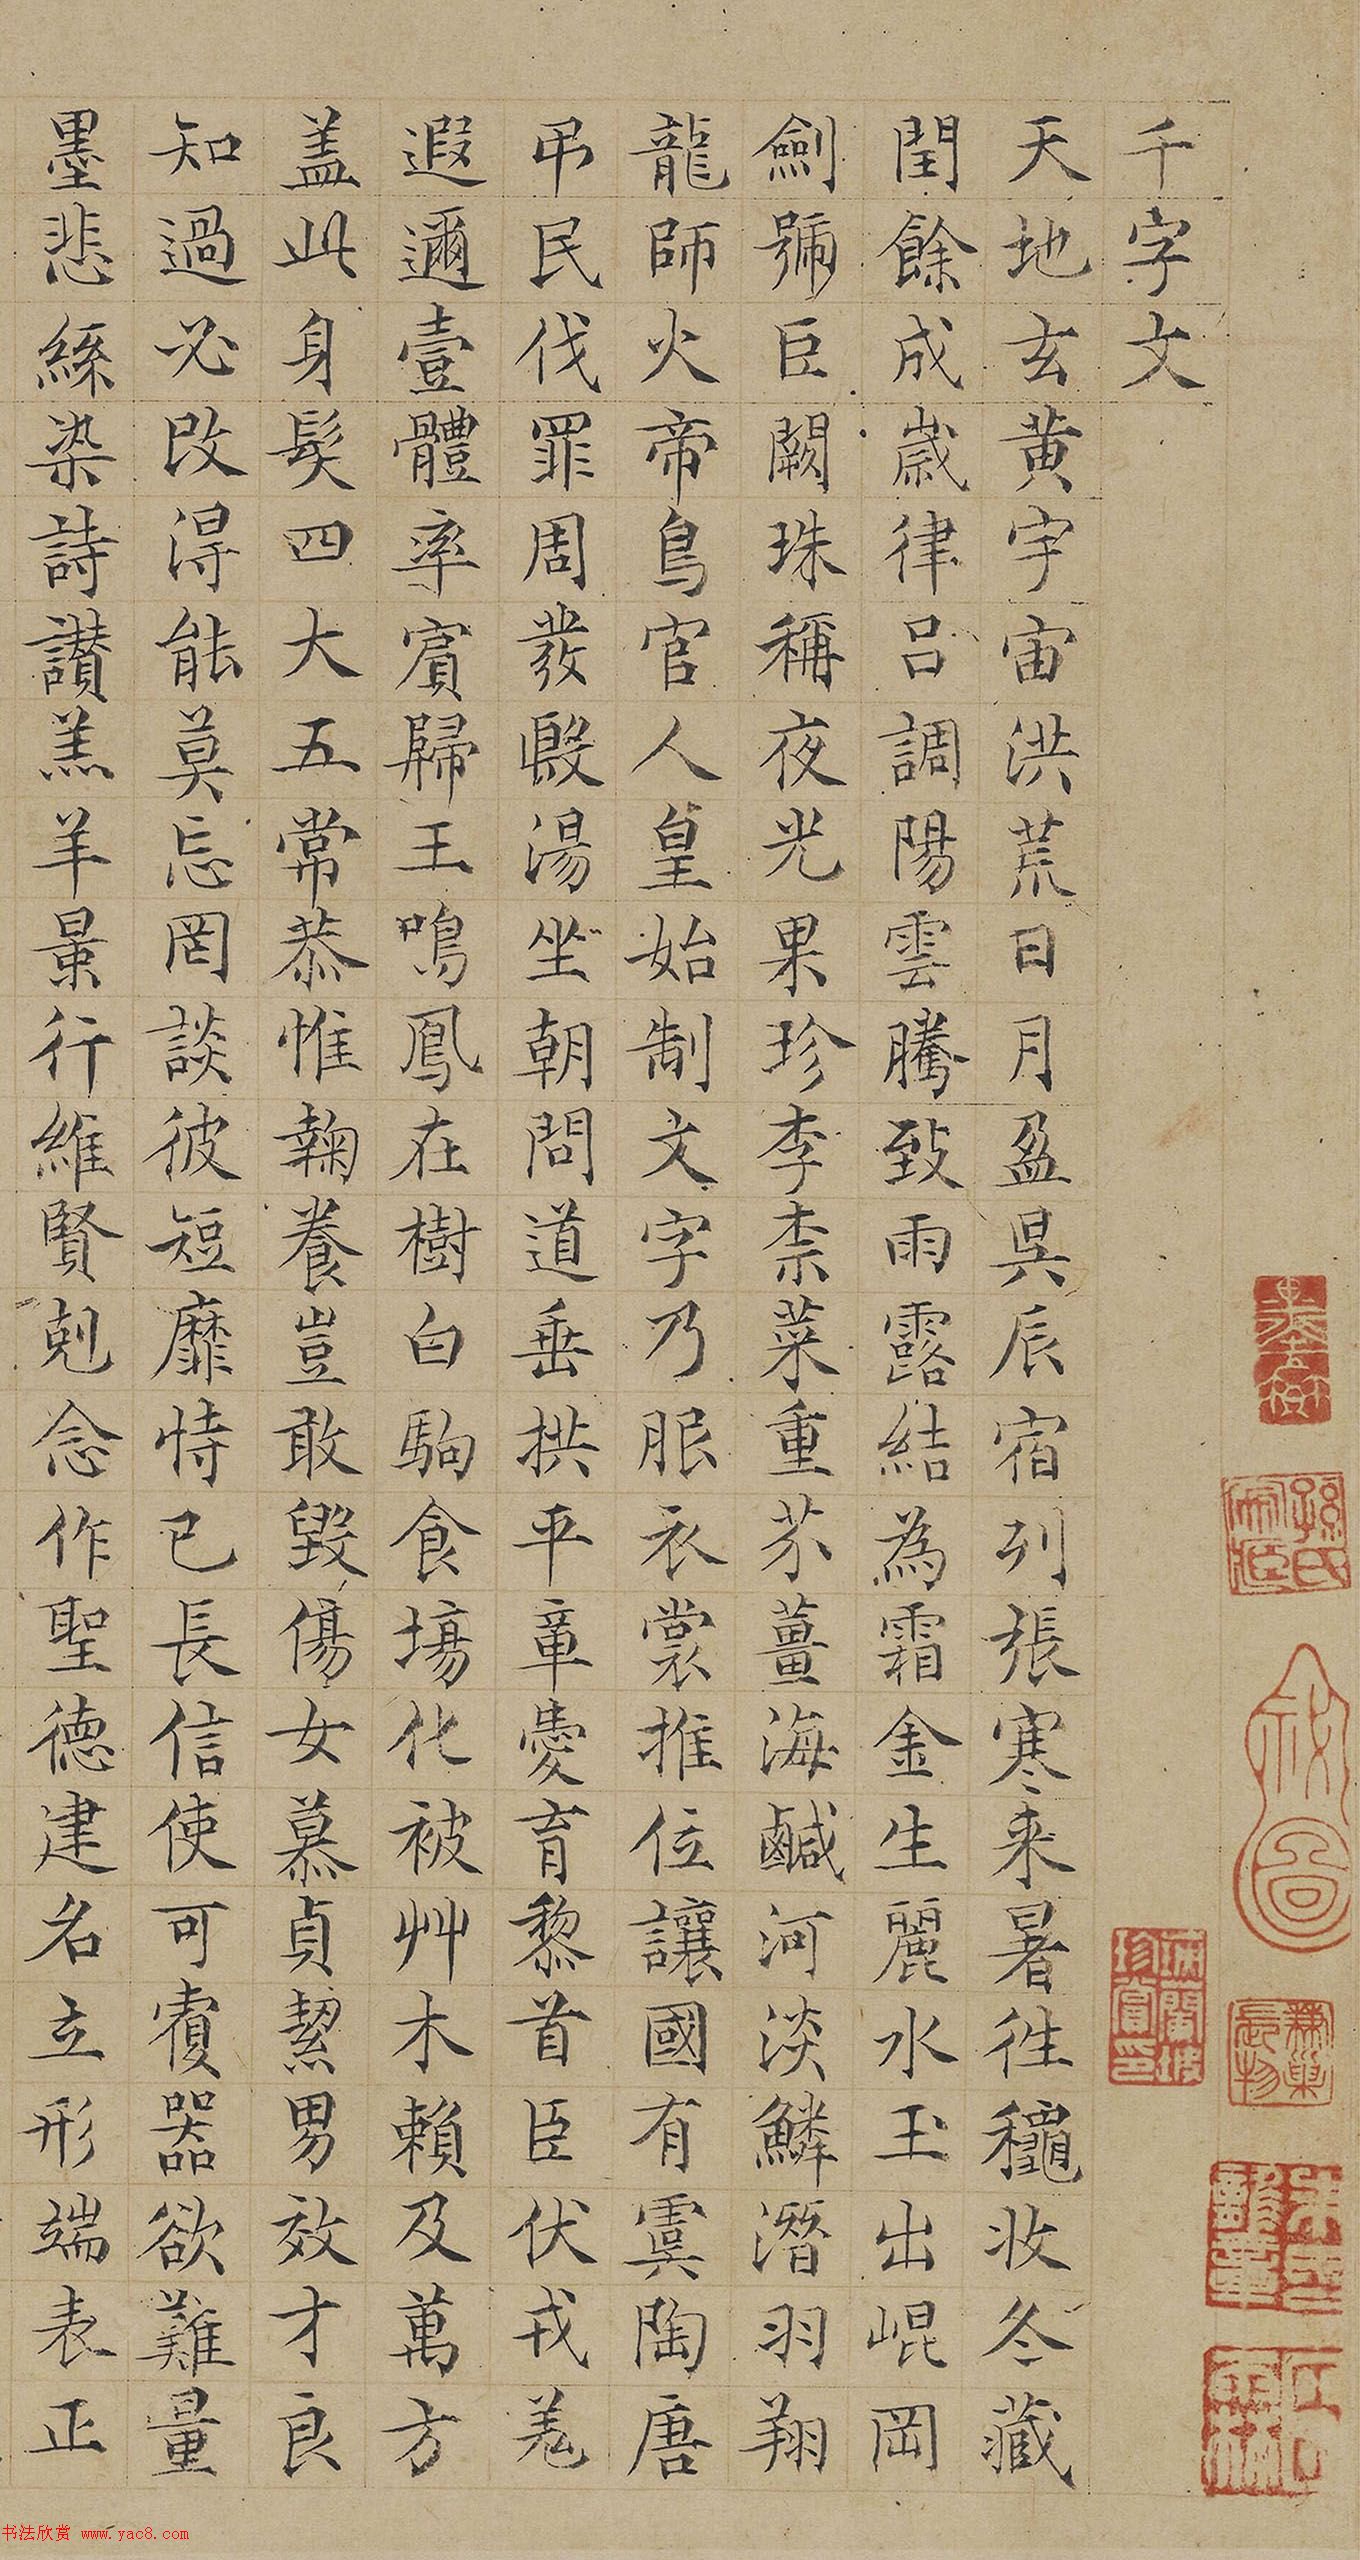 千字文
天地玄黄宇宙洪荒日月盈昃辰宿列張寒来暑往穐收冬藏
閏餘成歲律吕調陽雲騰致雨露結為霜金生麗水玉出崐岡
劒號臣闕珠稱夜光果珍李柰菜重芥薑海鹹河淡鱗潛羽翔
龍師火帝鳥官人皇始制文字乃服衣裳推位讓國有虞陶唐
弔民伐罪周發殷湯坐朝問道垂拱平章愛育黎首臣伏戎羌
遐邇壹體率賓歸王鳴鳳在樹白駒食場化被艸木賴及萬方
盖此身髮四大五常恭惟鞠養豈敢毀傷女慕貞絜男效才良
知過必改得能莫忘罔談彼短靡恃己長信使可覆器欲難量
墨悲絲染詩讃羔羊景行維賢剋念作聖德建名立形端表正
书法欣赏 www.yac8.com